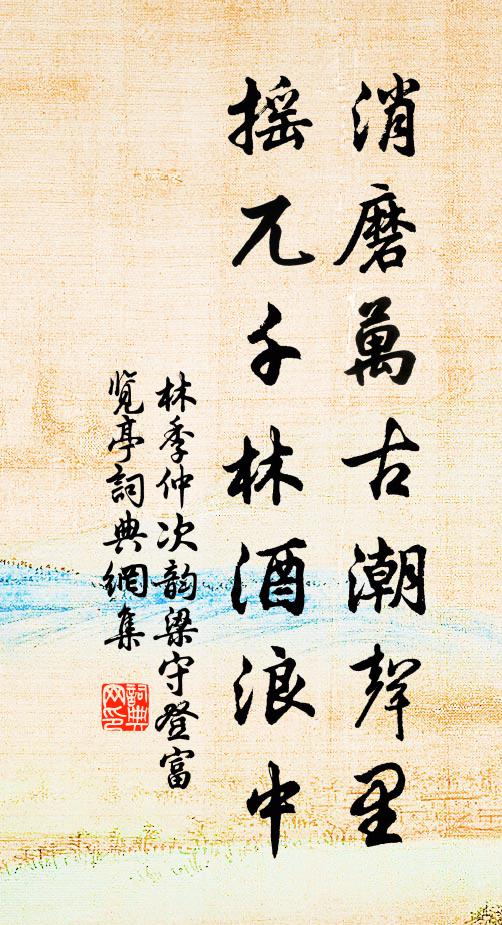 消磨萬古潮聲里
摇兀千林酒浪中
林季仲次韵梁守登富
览亭詞典網集
詞典网印